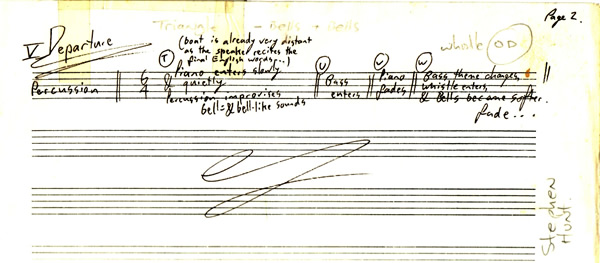 Page 2.
Triangle - Bells - Bells
V Departure
(boat is already very distant
as the speaker recites the
final English words...)
whistle OD
T
U
V
W
Percussion
6
4
Piano enters slowly
& quietly
Percussion improvises
bell= & bell-like sounds
Bass
enters
Piano
fades
Bass theme changes,
whistle enters,
& Bells become softer.
fade...
Stephen
Hunt.